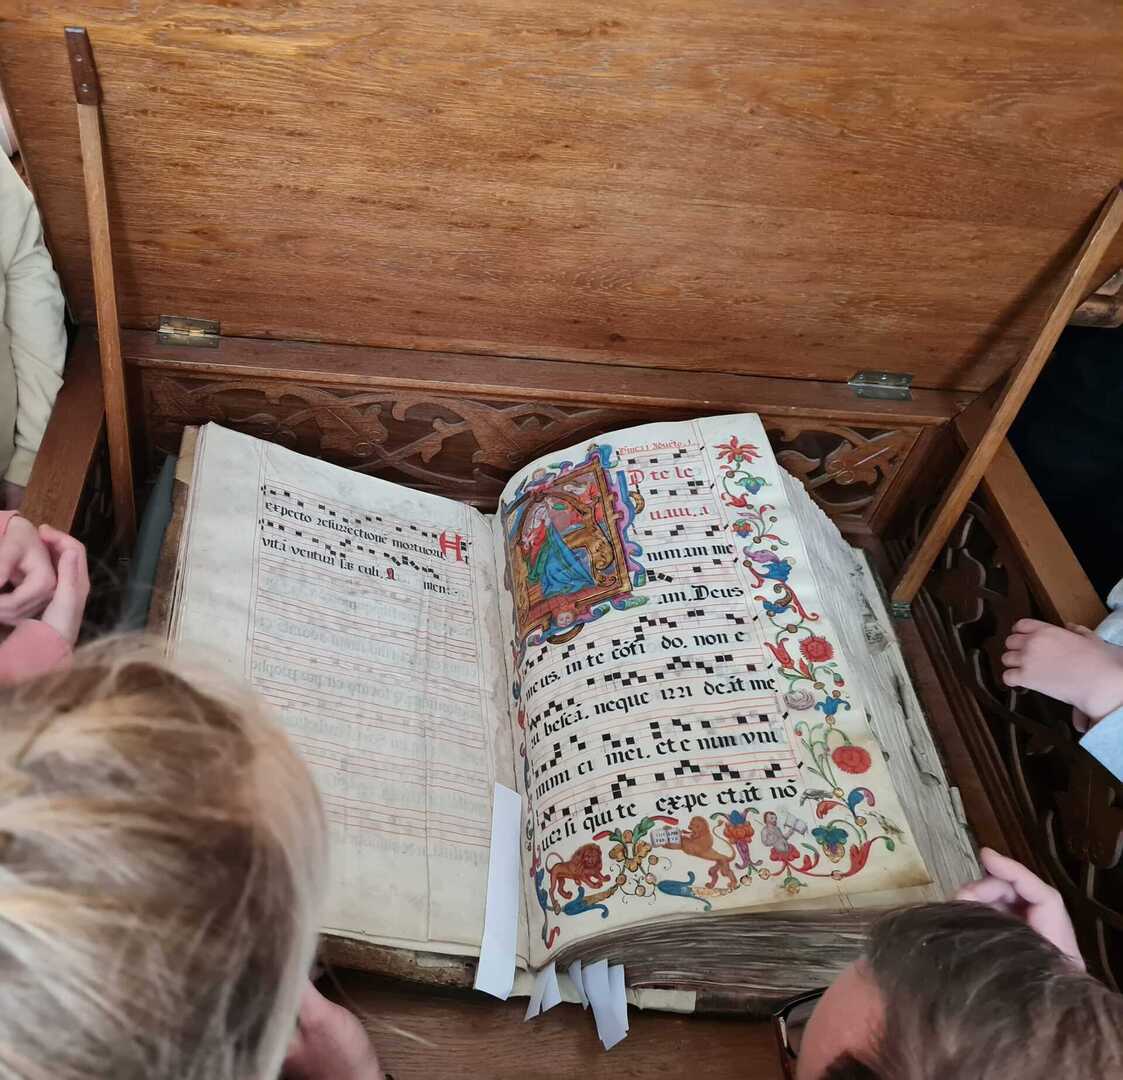 expecto resurrectionē mortuorū Et
vitā venturi sæculi. A men:
D te le
uaui. a
nimam me
am. Deus
meus, in te cōfi do, non e
ru bescā. neque irri deāt me
inimi ci mei. et e nim vni
uersi qui te expe ctāt nō